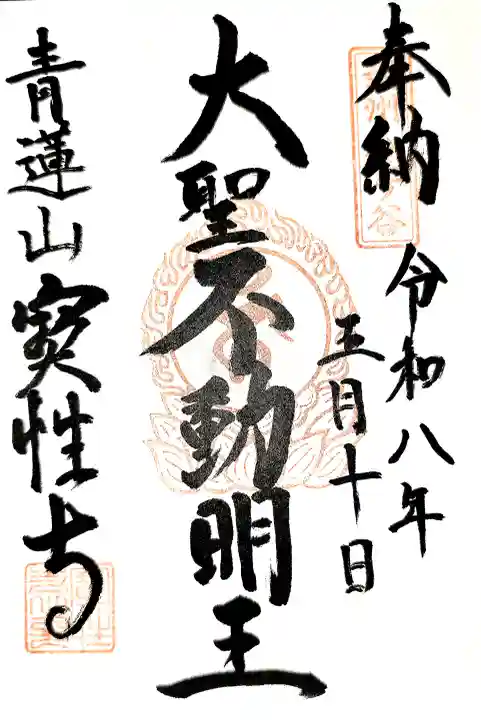 奉納 令和八年
五月十日
大聖不動明王
青蓮山 寶性寺